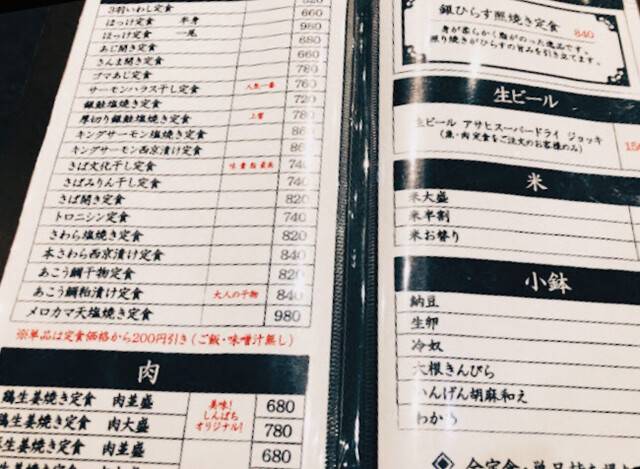 3枚いわし定食
660
ほっけ定食 半身
ほっけ定食 一尾 980
あじ開き定食 620
さんま開き定食 660
ゴマあじ定食 780
サーモンハラス干し定食 人気一番 760
銀鮭塩焼き定食 720
厚切り銀鮭塩焼き定食 上質 780
キングサーモン塩焼き定食
キングサーモン西京漬け定食
さば文化干し定食 味・量・脂・最高
さばみりん干し定食 740
さば開き定食 820
トロニシン定食 740
さわら塩焼き定食 820
本さわら西京漬け定食 840
あこう鯛干物定食 820
あこう鯛粕漬け定食 大人の干物 840
メロカマ天塩焼き定食 980
※単品は定食価格から200円引き(ご飯・味噌汁無し)
肉
鶏生姜焼き定食 肉並盛 680
鶏生姜焼き定食 肉大盛 780
生姜焼き定食 肉並盛 680
美味!
しんぱち
オリジナル!
銀ひらす照焼き定食 840
身が柔らかく脂がのった逸品です。
照り焼きがひらすの旨みを引き立てます。
生ビール
生ビール アサヒスーパードライ ジョッキ
(魚・肉 定食をご注文のお客様のみ)
米
米大盛
米半割
米お替り
小鉢
納豆
生卵
冷奴
大根きんぴら
いんげん胡麻和え
わかめ